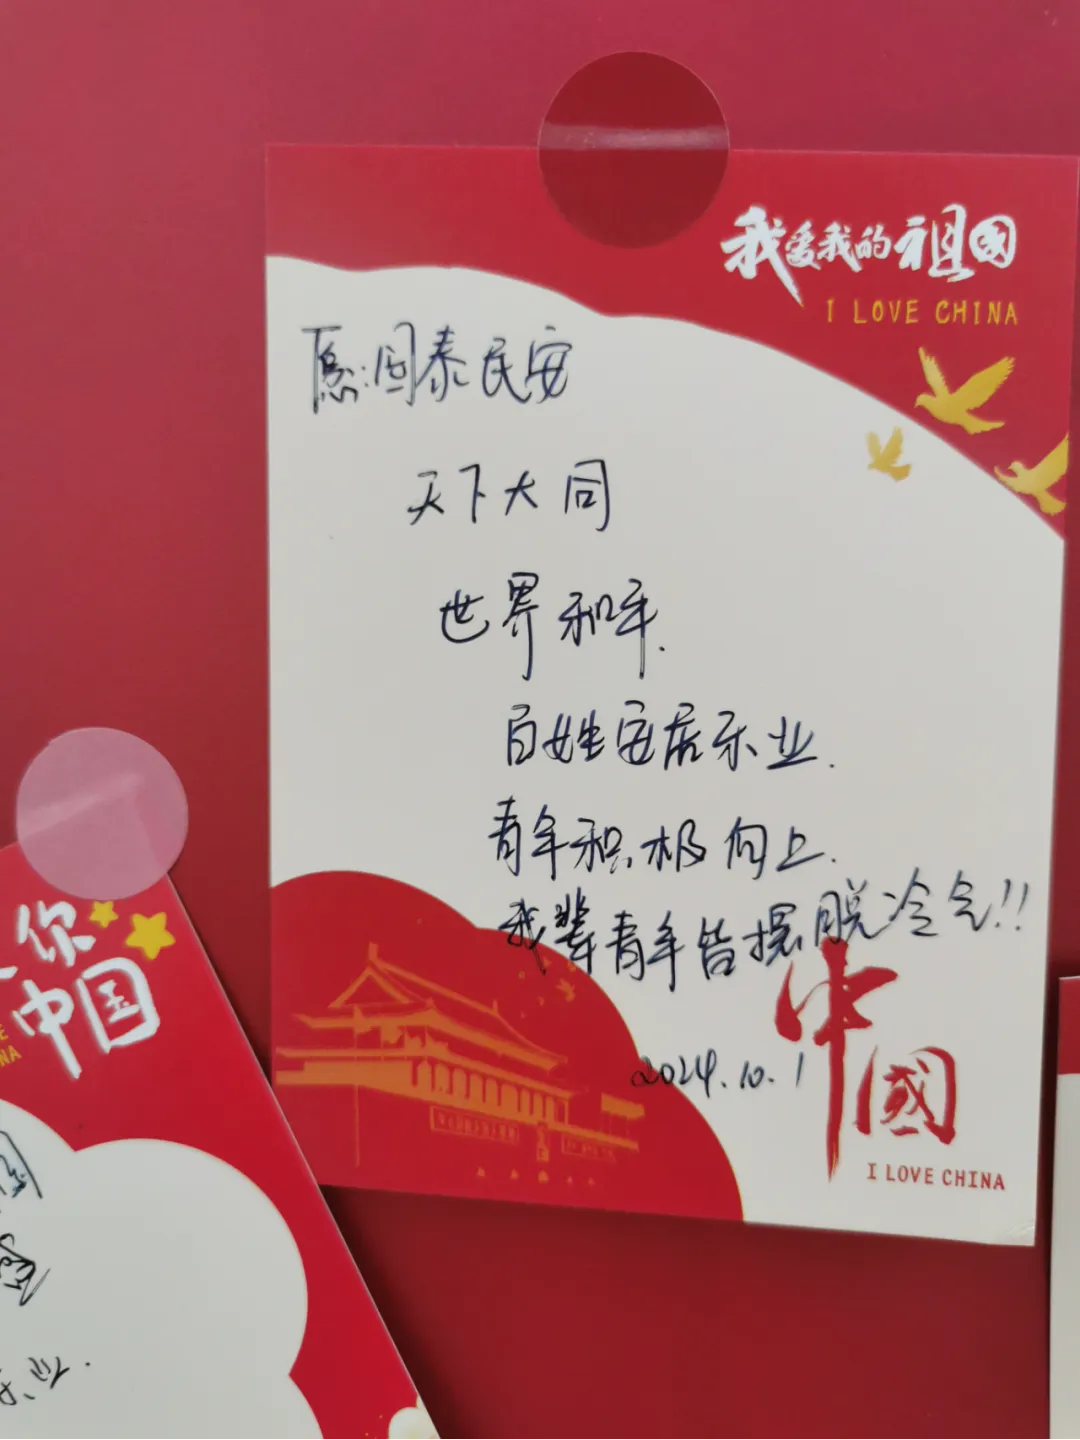 我爱我的祖国
I LOVE CHINA
愿:国泰民安
天下大同
世界和平.
百姓安居乐业.
青年积极向上.
我辈青年皆摆脱冷气!!
2024.10.1
中國
I LOVE CHINA
你
中国